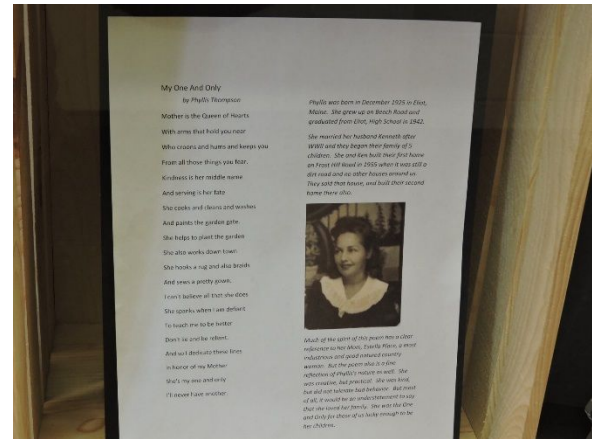 My One And Only
by Phyllis Thompson
Mother is the Queen of Hearts
With arms that hold you near
Who croons and hums and keeps you
From all those things you fear.
Kindness is her middle name
And serving is her fate
She cooks and cleans and washes
And paints the garden gate.
She helps to plant the garden
She also works down town
She hooks a rug and also braids
And sews a pretty gown.
I can't believe all that she does
She spanks when I am defiant
To teach me to be better
Don't lie and be reliant.
And so I dedicate these lines
In honor of my Mother
She's my one and only
I'll never have another.
Phyllis was born in December 1925 in Eliot,
Maine. She grew up on Beech Road and
graduated from Eliot, High School in 1942.
She married her husband Kenneth after
WWII and they began their family of 5
children. She and Ken built their first home
on Frost Hill Road in 1955 when it was still a
dirt road and no other houses around us.
They sold that house, and built their second
home there also.
Much of the spirit of this poem has a clear
reference to her Mom, Estelle, a most
industrious and good natured country
woman. But the poem also is a fine
reflection of Phyllis's nature as well. She
was creative, but practical. She was kind,
but did not tolerate bad behavior. But most
of all, it would be an understatement to say
that she loved her family. She was the One
and Only for those of us lucky enough to be
her children.